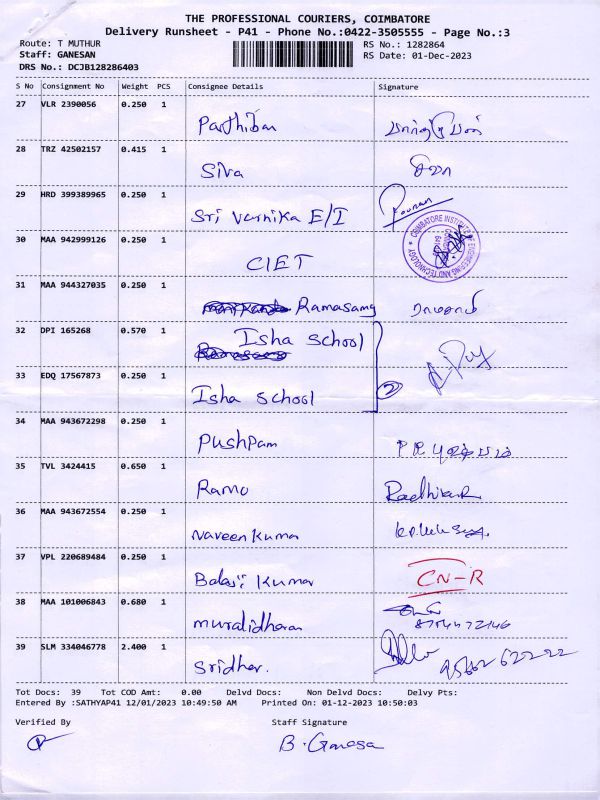 THE PROFESSIONAL COURIERS, COIMBATORE
Delivery Runsheet - P41 - Phone No.:0422-3505555 - Page No.:3
Route: T MUTHUR RS No.: 1282864
Staff: GANESAN RS Date: 01-Dec-2023
DRS No.: DCJB128286403
S No Consignment No Weight PCS Consignee Details Signature
27 VLR 2390056 0.250 1
Parthiban
28 TRZ 42502157 0.415 1
Siva
29 HRD 399389965 0.250 1
Sri Varnika E/I
30 MAA 942999126 0.250 1
CIET
COIMBATORE INSTITUTE OF ENGINEERING AND TECHNOLOGY
31 MAA 944327035 0.250 1
Ramasamy
32 DPI 165268 0.570 1
Isha School
33 EDQ 17567873 0.250 1
Isha School 2
34 MAA 943672298 0.250 1
Pushpam
35 TVL 3424415 0.650 1
Ramu Radhika R
36 MAA 943672554 0.250 1
Naveen Kumar
37 VPL 220689484 0.250 1
Balaji Kumar CN-R
38 MAA 101006843 0.680 1
Muralidharan
39 SLM 334046778 2.400 1
Sridher.
Tot Docs: 39 Tot COD Amt: 0.00 Delvd Docs: Non Delvd Docs: Delvy Pts:
Entered By :SATHYAP41 12/01/2023 10:49:50 AM Printed On: 01-12-2023 10:50:03
Verified By Staff Signature
B. Ganesa